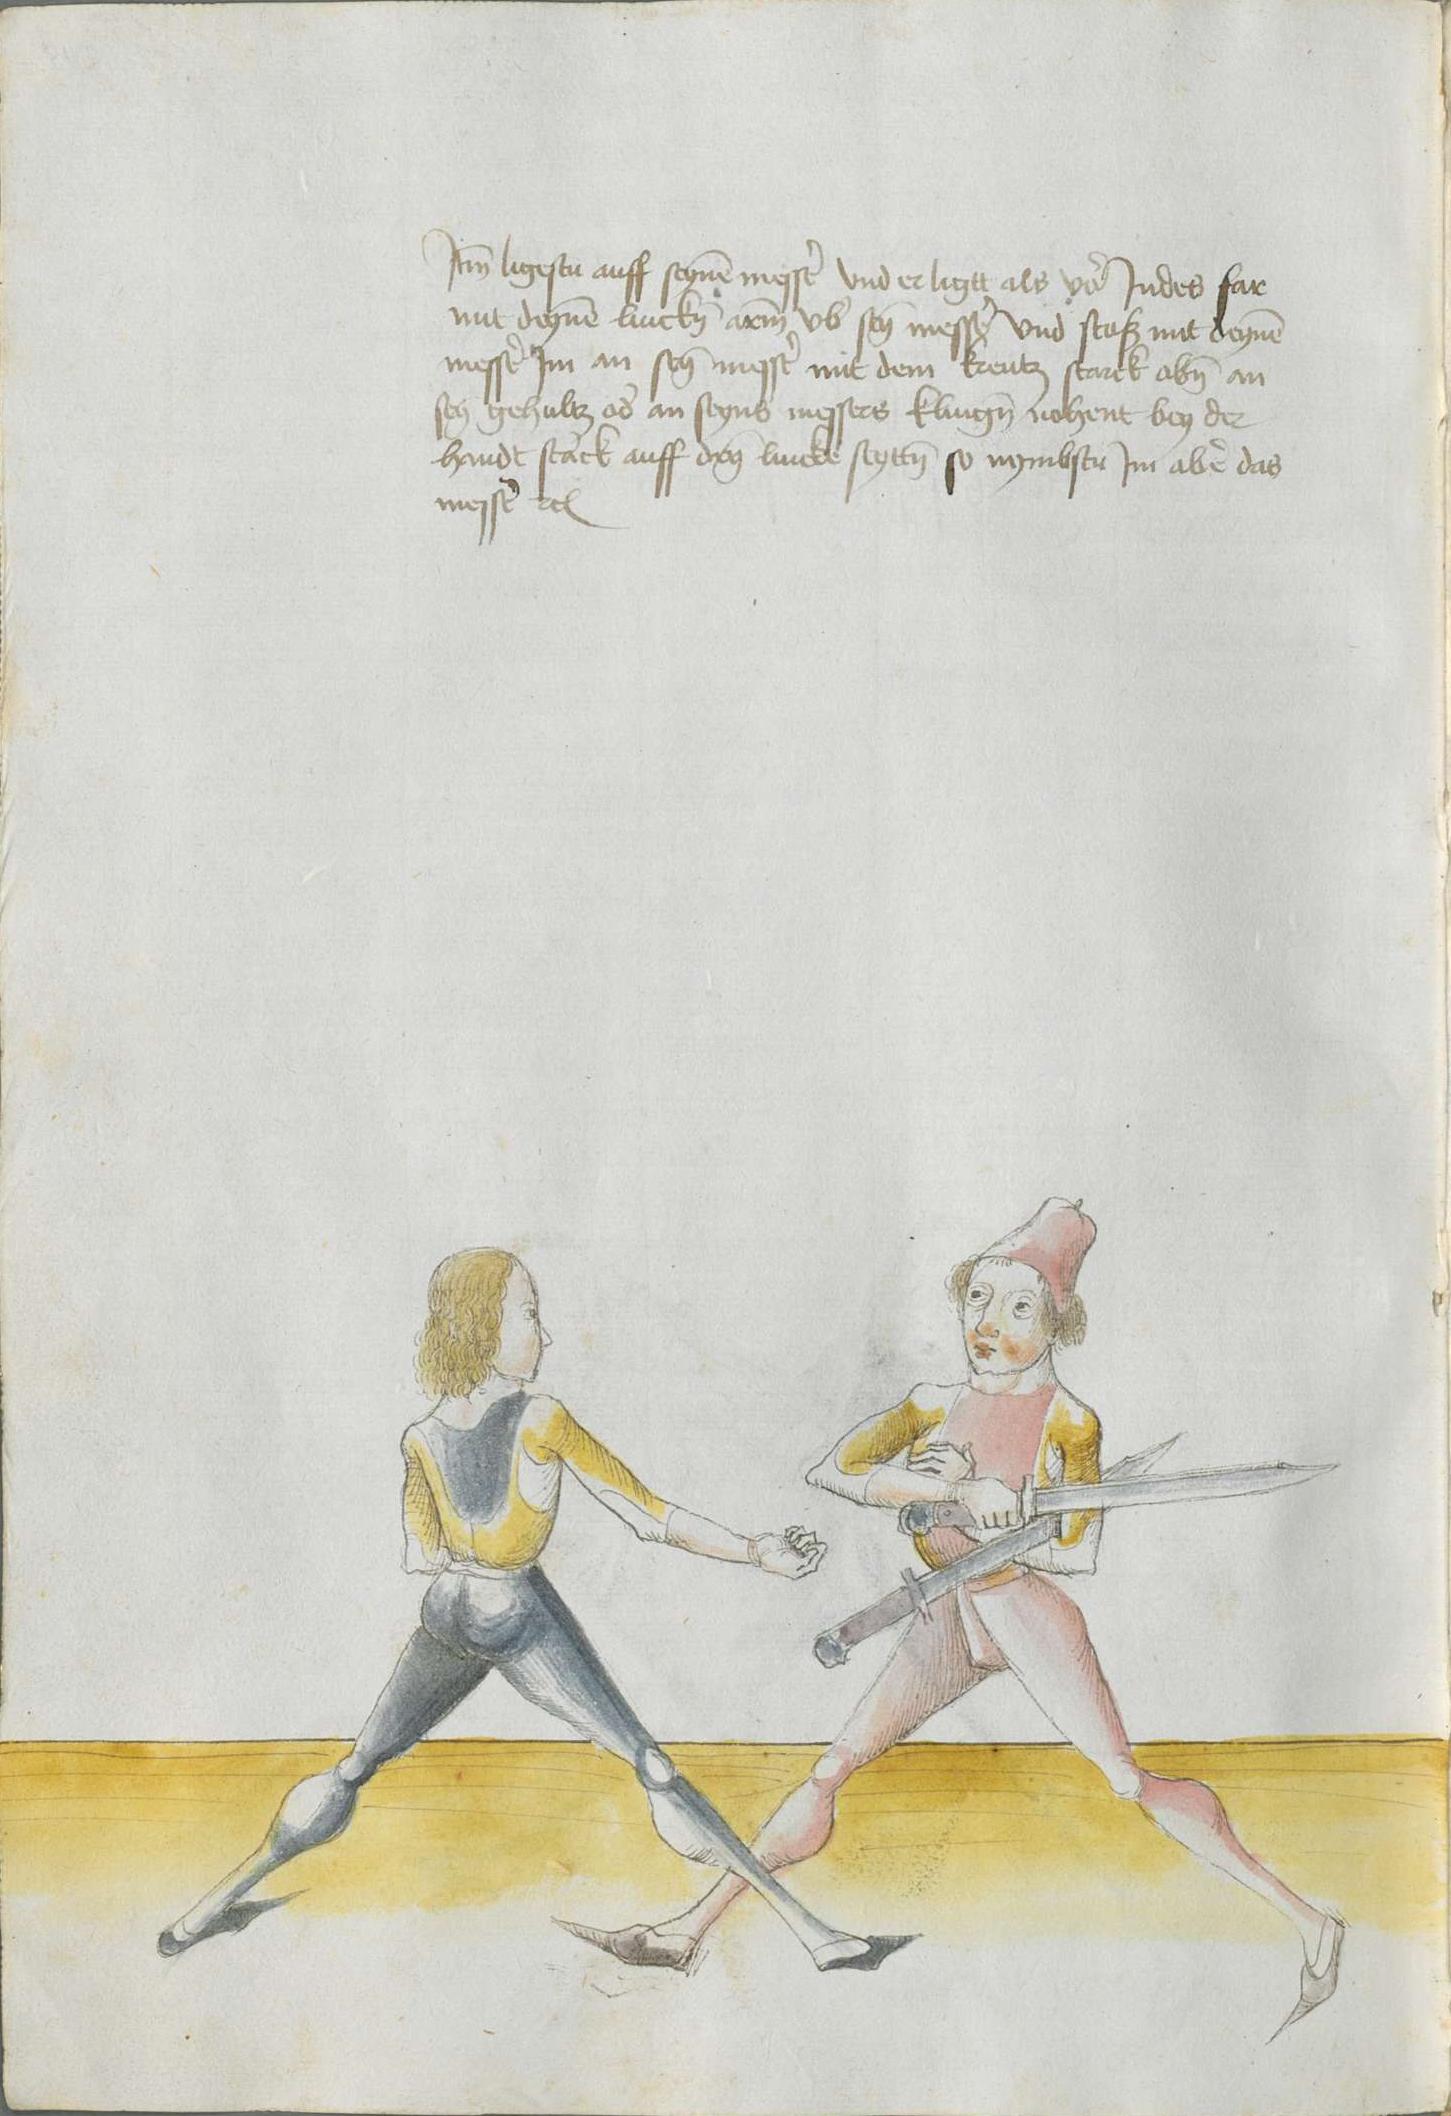 Itm̄ ligestu auff seynē messer̄ vnd er ligtt als vor̄ Indes far
mit deynē linckn̄ arm̄ vb̄ seȳ messer̄ vnd stoß mit deynē
messer̄ Im an seȳ messer̄ mit dem kreutz starck obn̄ an
seȳ gehultz od̄ an seyns messers klingn̄ nohent bey der
handt starck auff deȳ lincke seyttn̄ so nymbstu Im aber̄ das
messer̄ rc